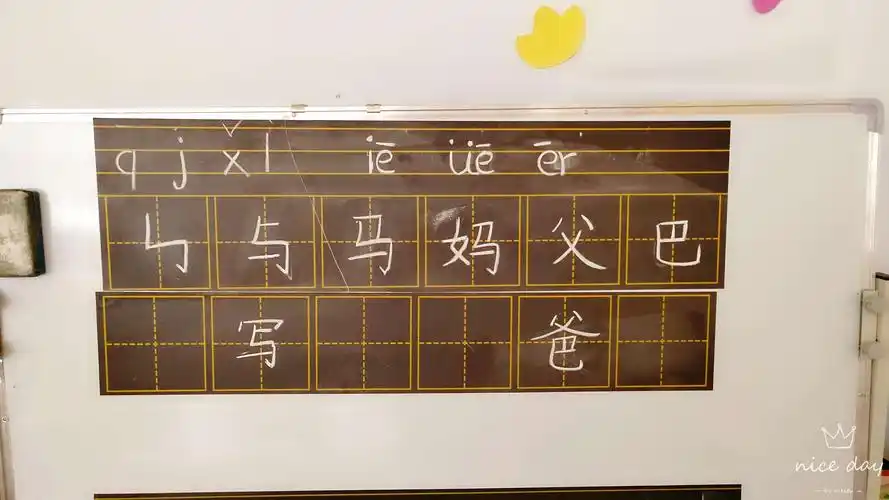 q j xǐ iē üē ēr
ㄣ 与 马 妈 父 巴
写 爸
nice day